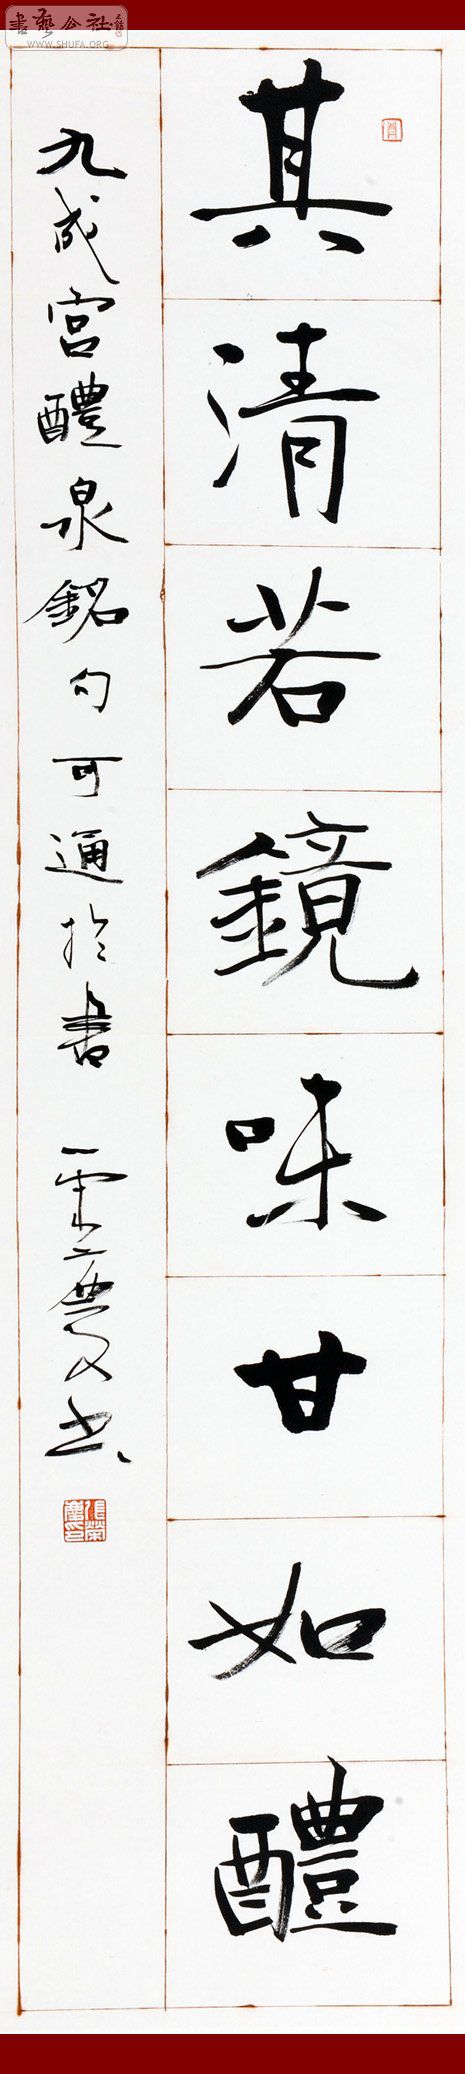 書藝公社
WWW.SHUFA.ORG
其清若鏡味甘如醴
九成宮醴泉銘句可通於書 慶書
張榮慶印